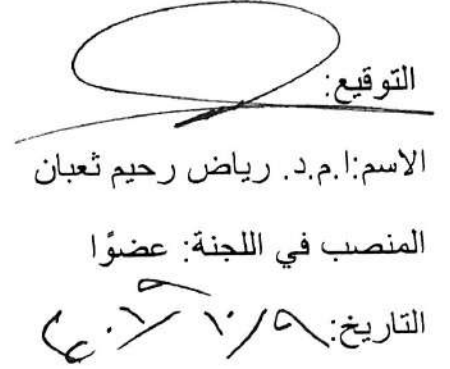 التوقيع:
الاسم:ا.م.د. رياض رحيم ثعبان
المنصب في اللجنة: عضوًا
التاريخ: